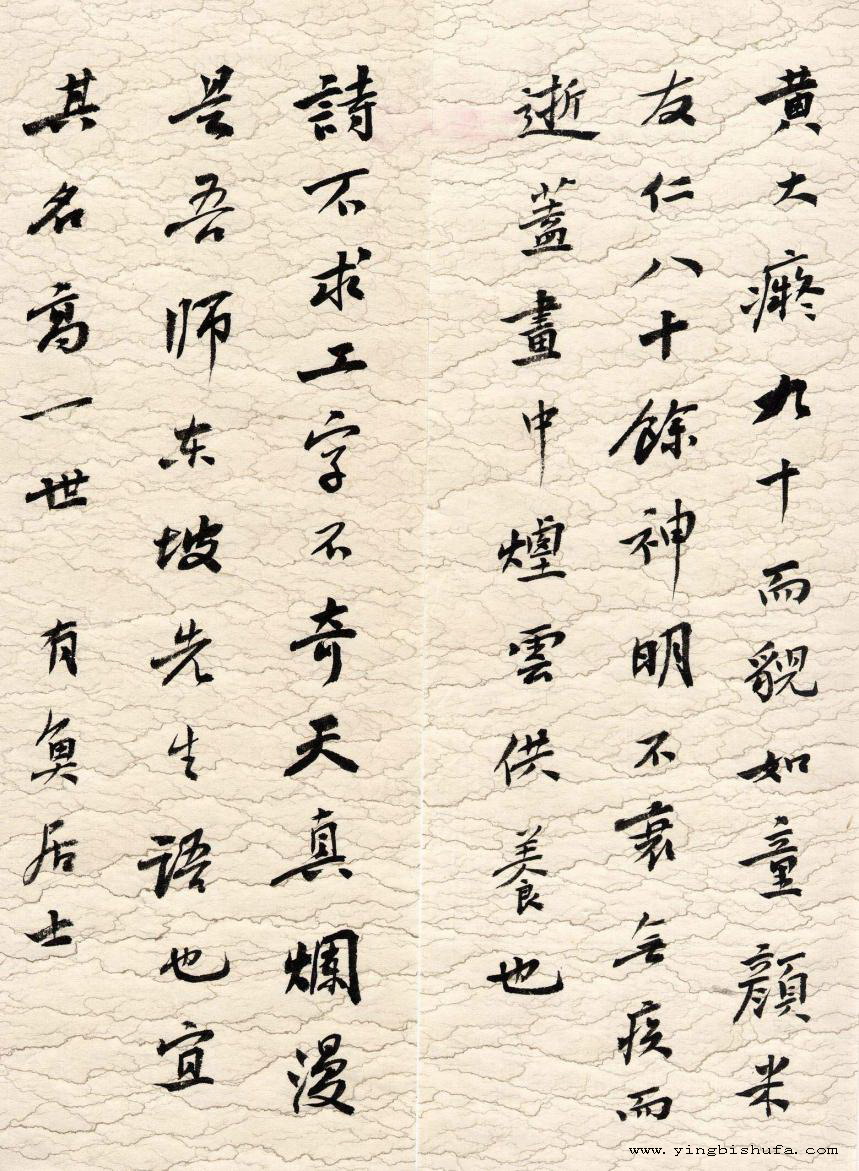 黄大癡九十而貌如童顏米
友仁八十餘神明不衰無疾而
逝蓋畫中煙雲供養也
詩不求工字不奇天真爛漫
是吾師东坡先生語也宜
其名高一世 有奐居士
www.yingbishufa.com